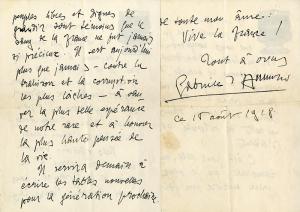 peuples libres et dignes de
grandir sont témoins que le
sang de la France ne fut jamais
si précieux. Il est aujourd'hui
plus que jamais - contre la
trahison et la corruption
les plus lâches - à
ver la plus belle espérance
de notre race et à honorer
la plus haute pensée de
la vie.
Il servira demain à
écrire les tables nouvelles
pour la génération prochaine
de toute mon âme:
Vive la France!
Tout à vous
Gabriele d'Annunzio
ce 18 août 1918